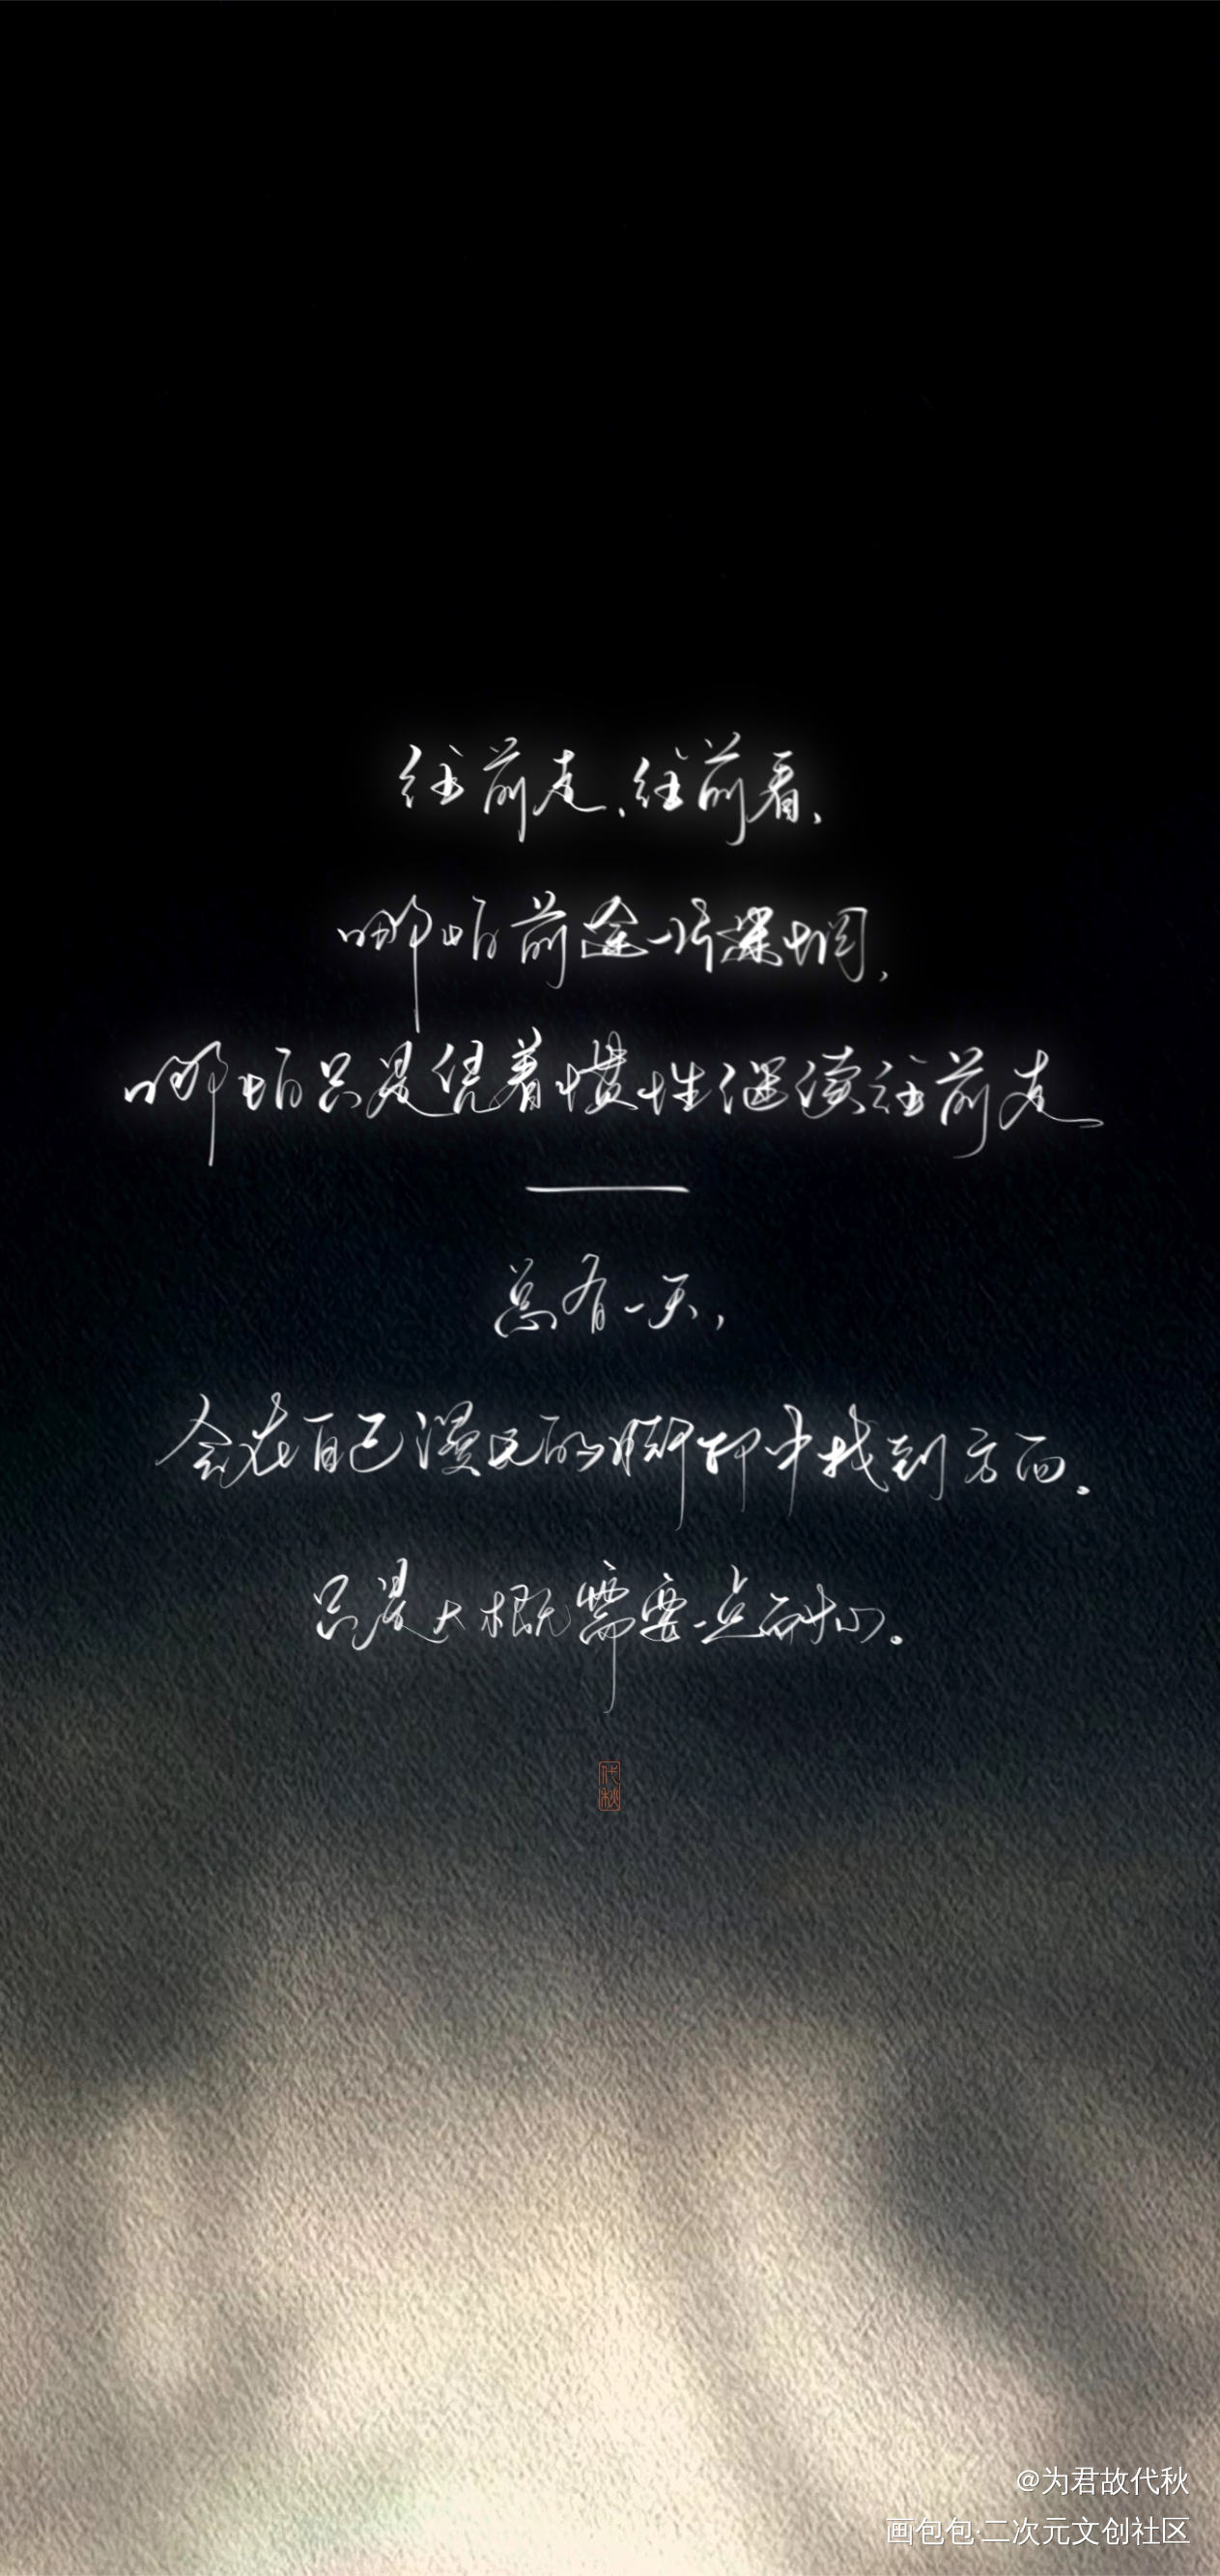 往前走、往前看、
哪怕前途一片深惘、
哪怕只是凭着惯性继续往前走
——
总有一天，
会在自己漫无的脚印中找到方向。
只是大概需要一点耐心。
代秋
@为君故代秋
画包包·二次元文创社区